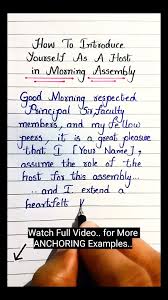 How To Introduce
Yourself As A Host
in Morning Assembly
Good Morning respected
Principal Sir, faculty
members, and my fellow
peers, it is a great pleasure
that I [Your Name],
assume the role of the
host for this assembly...
...and I extend a
heartfelt
Watch Full Video.. for More
ANCHORING Examples..